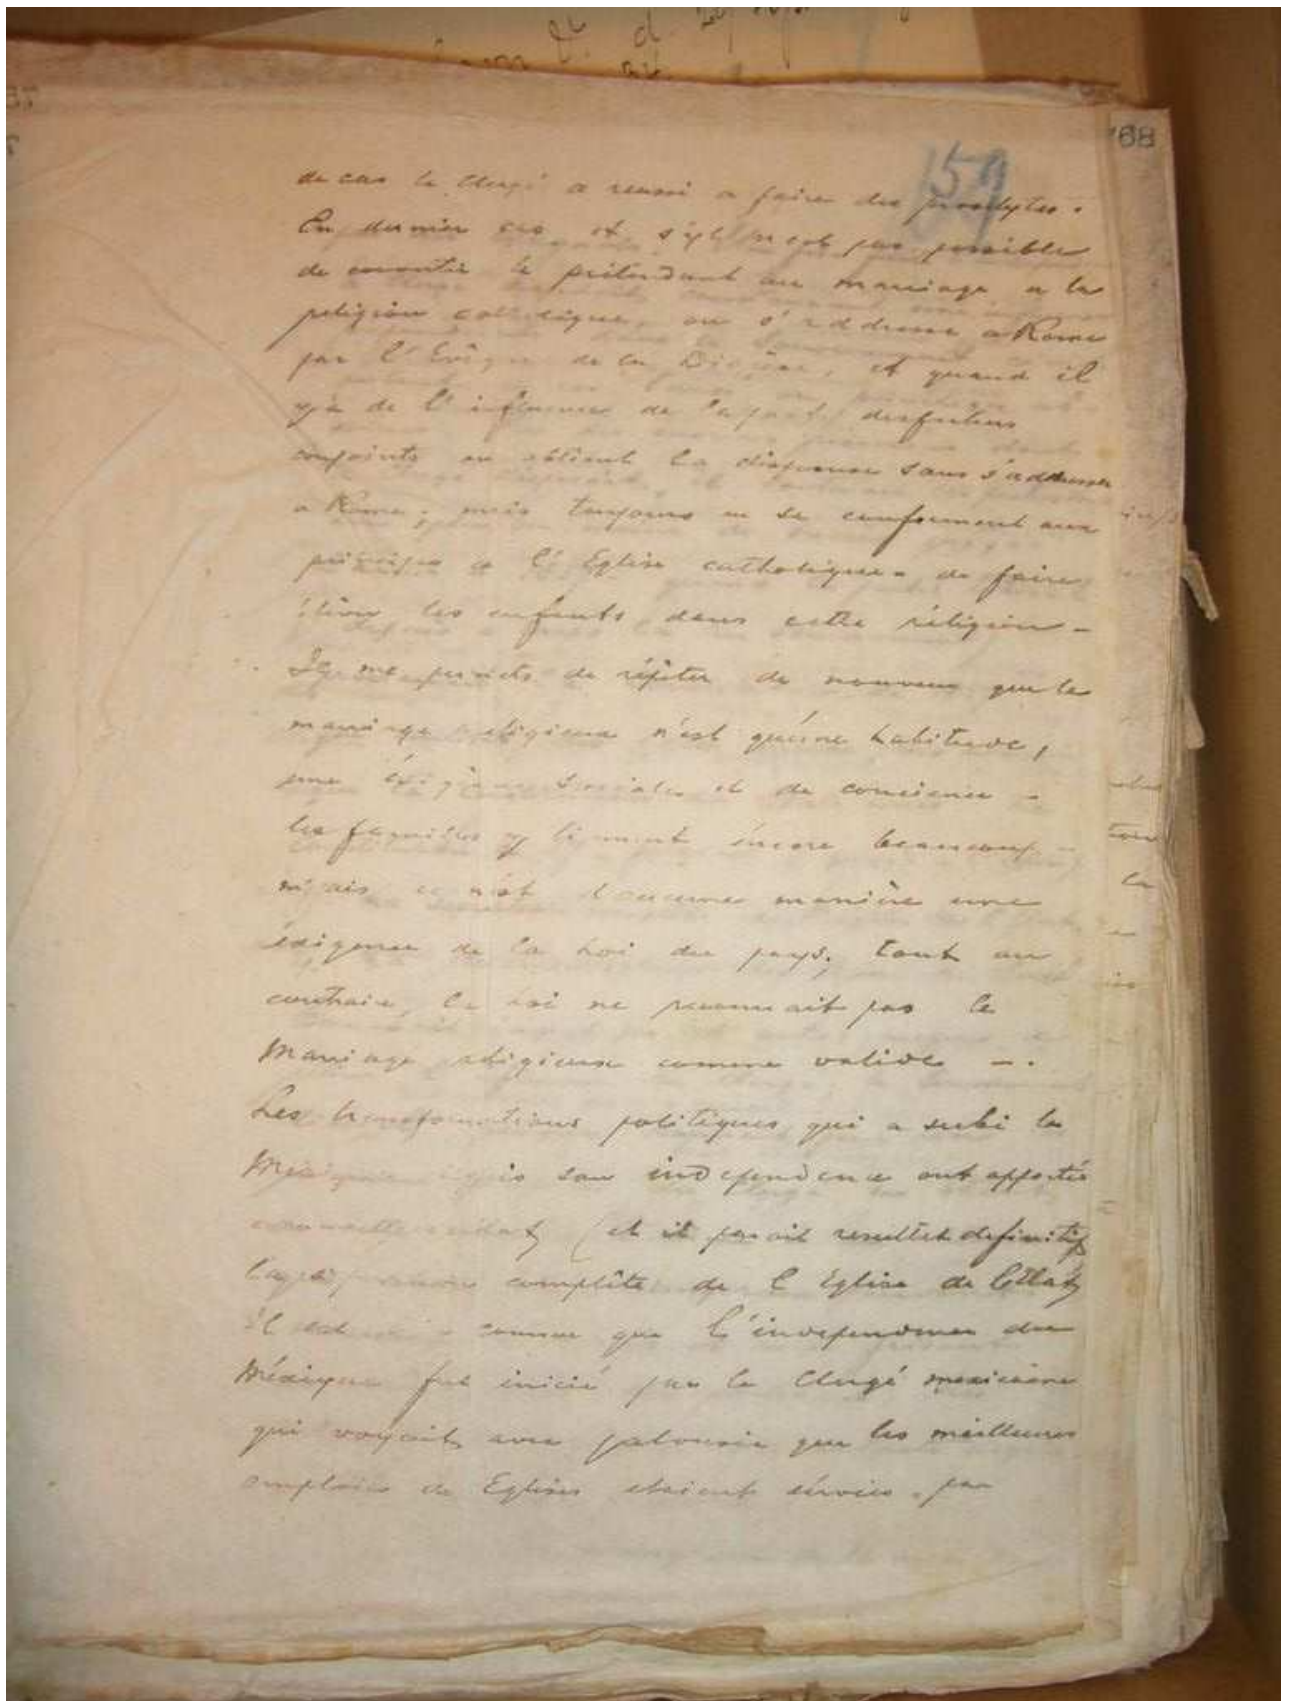 68
159
de cas le Clergé a reussi a faire des proselytes.
En dernier cas et s'il n'est pas possible
de convertir le prétendant au mariage a la
religion catholique, on s'addresse a Rome
par l'Evêque de la Diocèse, et quand il
y a de l'influence de la part des futurs
conjoints on obtient la dispense sans s'addresser
a Rome; mais toujours en se conformant aux
principes de l'Eglise catholique de faire
élever les enfants dans cette réligion -
Je me permets de répéter de nouveau que le
mariage religieux n'est qu'une habitude,
une éxigence sociale et de concience -
les familles y tiennent éncore beaucoup -
mais ce n'est d'aucune manière une
éxigence de la Loi du pays, tout au
contraire, la Loi ne reconnait pas le
Mariage réligieux comme valide -.
Les transformations politiques qui a subi le
Méxique depuis son independence ont apportés
comme resultat (et il parait resultat definitif
la separation complète de l'Eglise de l'Etat
Il est connue que l'independence du
Méxique fut inicié par le Clergé mexicaine
qui voyait avec jalousie que les meilleures
emplois de Eglises etaient servies par